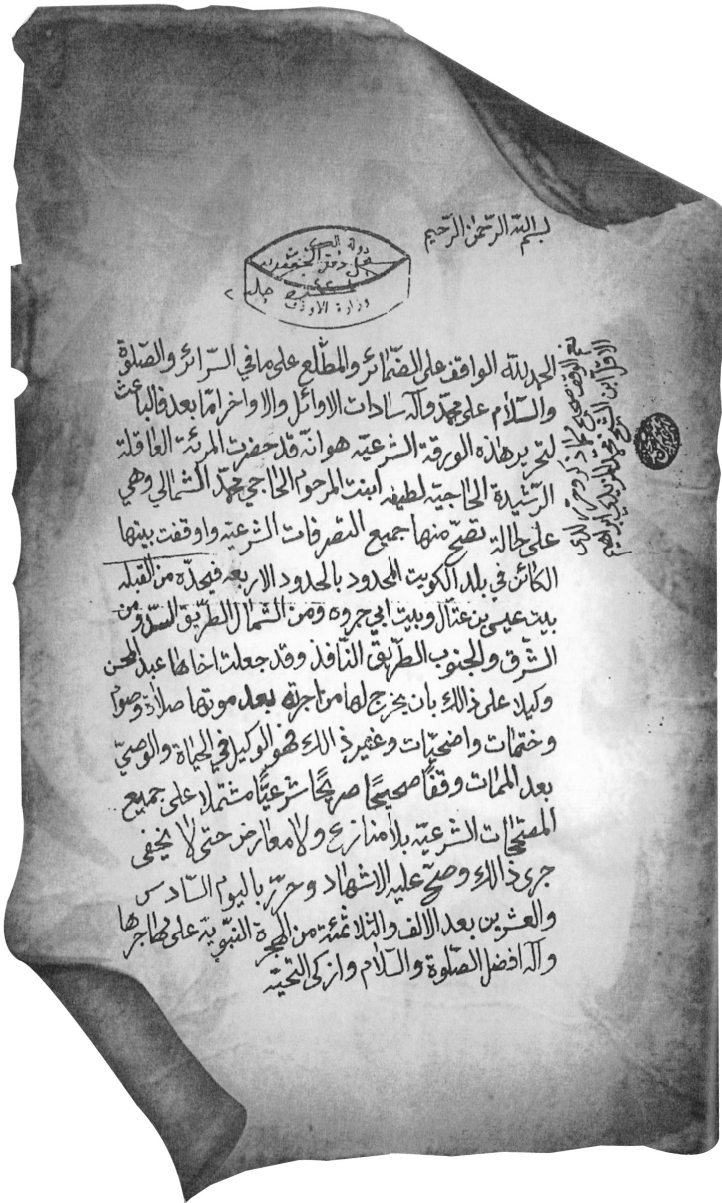 بسم الله الرحمن الرحيم
دولة الكويت
وزارة الاوقاف
الحمد لله الواقف على الضّمائر والمطّلع على ما في السّرائر والصّلوة
والسّلام على محمّد وآله سادات الاوائل والاواخر امّا بعد فالباعث
لتحرير هاذه الورقة الشرعيّه هو انّه قد حضرت المرئة العاقلة
الرّشيدة الحاجيّه لطيفه ابنت المرحوم الحاجي محمّد الشمالي وهي
على حالة تصحّ منها جميع التصرفات الشرعيّه واوقفت بيتها
الكائن في بلد الكويت المحدود بالحدود الاربعه فيحدّه من القبله
بيت عيسى بن عتّال وبيت ابي جروه ومن الشمال الطّريق السّدّ ومن
الشّرق والجنوب الطّريق النّافذ وقد جعلت اخاها عبد المحسن
وكيلا على ذالك بان يخرج لها من اجرته بعد موتها صلاة وصوم
وختمات واضحيّات وغير ذالك فهو الوكيل في الحياة والوصيّ
بعد الممات وقفًا صحيحًا صريحًا شرعيًّا مشتملا على جميع
المصحّحات الشرعيّه بلا منازع ولا معارض حتى لا يخفى
جرى ذالك وصحّ عليه الاشهاد وحرّر باليوم السّادس
والعشرين بعد الالف والثلاثمئة من الهجرة النبّويّة على مهاجرها
وآله افضل الصّلوة والسّلام وازكى التحيّه